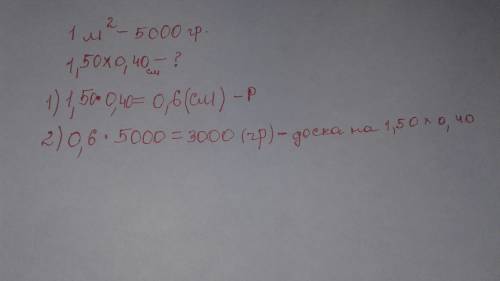 1 м² – 5000 гр.
1,50×0,40см – ?
1) 1,50 · 0,40 = 0,6 (см) – Р
2) 0,6 · 5000 = 3000 (гр) – доска на 1,50×0,40